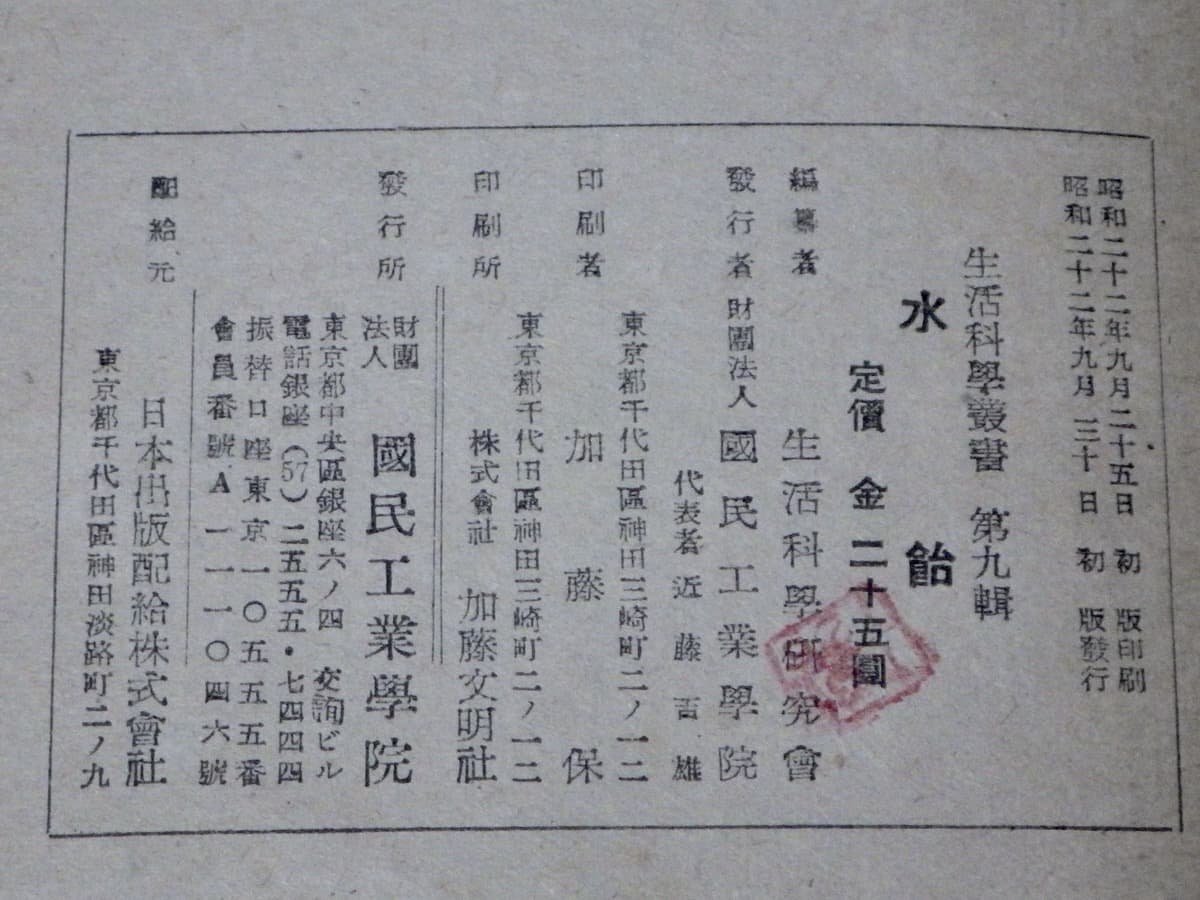 昭和二十二年九月二十五日 初版印刷
昭和二十二年九月三十日 初版發行
生活科學叢書 第九輯
水飴
定價 金二十五圓
編纂者 生活科學研究會
發行者 財團法人 國民工業學院
代表者 近藤吉雄
東京都千代田區神田三崎町二ノ一二
印刷者 加藤保
東京都千代田區神田三崎町二ノ一二
印刷所 株式會社 加藤文明社
發行所 財團法人 國民工業學院
東京都中央區銀座六ノ四 交詢ビル
電話銀座(57)二五五五・七四四四
振替口座東京一〇五五五番
會員番號A一一一〇四六號
配給元 日本出版配給株式會社
東京都千代田區神田淡路町二ノ九